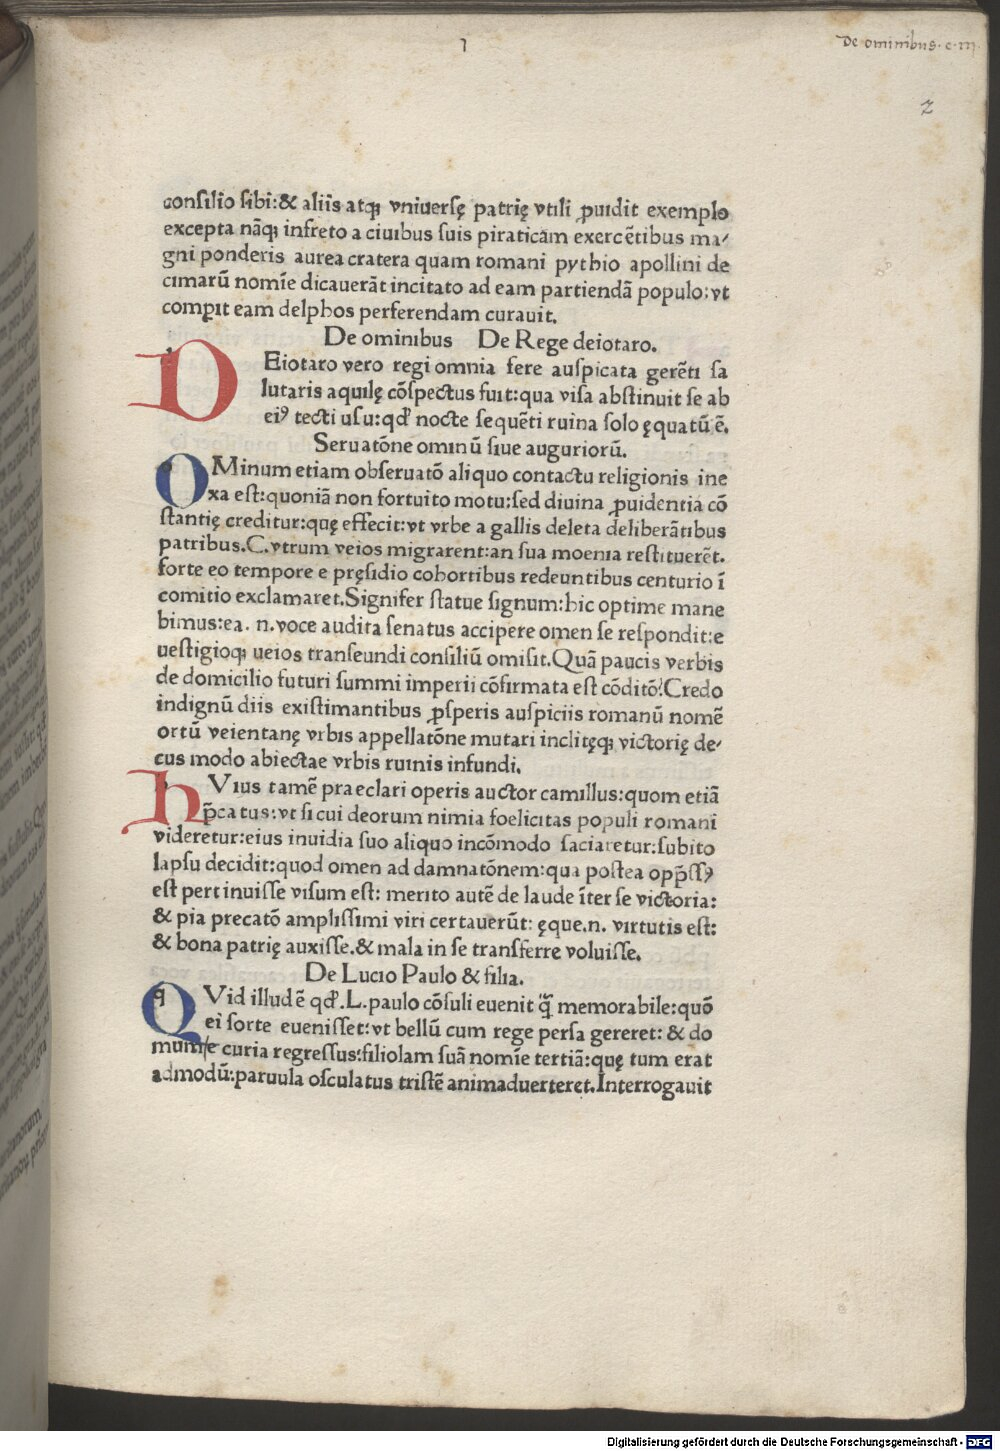 1
De ominibus. c. III.
2
conſilio ſibi:& aliis atq; vniuerſę patrię vtili ꝓuidit exemplo
excepta nãq; infreto a ciuibus ſuis piraticam exercẽtibus ma⸗
gni ponderis aurea cratera quam romani pythio apollini de
cimarũ nomĩe dicauerãt incitato ad eam partiendã populo:vt
comꝑit eam delphos perferendam curauit.
De ominibus De Rege deiotaro.
DEiotaro vero regi omnia fere auſpicata gerẽti ſa
lutaris aquilę cõſpectus fuit:qua viſa abſtinuit ſe ab
eiꝰ tecti uſu:qđ nocte ſequẽti ruina ſolo ęquatũ ẽ.
Seruatõne ominũ ſiue auguriorũ.
OMinum etiam obſeruatõ aliquo contactu religionis ine
xa eſt:quoniã non fortuito motu:ſed diuina ꝓuidentia cõ
ſtantię creditur:quę effecit:vt vrbe a gallis deleta deliberãtibus
patribus.C.vtrum veios migrarent:an ſua moenia reſtituerẽt.
forte eo tempore e pręſidio cohortibus redeuntibus centurio ĩ
comitio exclamaret.Signifer ſtatue ſignum:hic optime mane
bimus:ea. n. voce audita ſenatus accipere omen ſe reſpondit:e
ueſtigioq; ueios tranſeundi conſiliũ omiſit.Quã paucis verbis
de domicilio futuri ſummi imperii cõfirmata eſt cõditõ!Credo
indignũ diis exiſtimantibus ꝓſperis auſpiciis romanũ nomẽ
ortũ veientanę vrbis appellatõne mutari inclitęq; victorię de⸗
cus modo abiectae vrbis ruinis infundi.
hVius tamẽ praeclari operis auctor camillus:quom etiã
p̃catus:vt ſi cui deorum nimia foelicitas populi romani
videretur:eius inuidia ſuo aliquo incõmodo ſaciaretur:ſubito
lapſu decidit:quod omen ad damnatõnem:qua poſtea opp̃ſſꝰ
eſt pertinuiſſe viſum eſt: merito autẽ de laude ĩter ſe victoria:
& pia precatõ ampliſſimi viri certauerũt: ęque.n. virtutis eſt:
& bona patrię auxiſſe.& mala in ſe tranſferre voluiſſe.
De Lucio Paulo & filia.
QVid illud ẽ qđ.L.paulo cõſuli euenit q̃ꝫ memorabile:quõ
ei ſorte eueniſſet:vt bellũ cum rege perſa gereret: & do
mum/e curia regreſſus:filiolam ſuã nomĩe tertiã:quę tum erat
admodũ:paruula oſculatus triſtẽ animaduerteret.Interrogauit
Digitalisierung gefördert durch die Deutsche Forschungsgemeinschaft - DFG